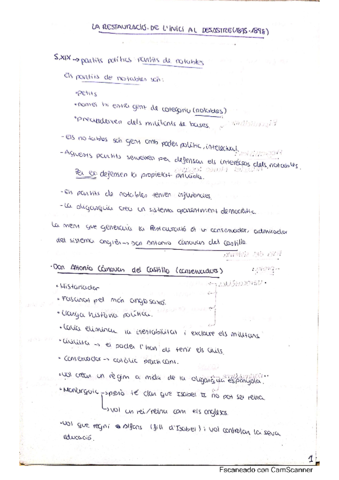 LA RESTAURACIÓ: DE L'INICI AL DESASTRE (1875-1898)
S.XIX → partits polítics partits de notables
Els partits de notables són:
• petits
• només hi entra gent de categoria (notables)
• prescindeixen dels militants de bases
- Els notables són gent amb poder polític, intelectual.
- Aquests partits serveixen per defensar els interessos dels notables.
Per això defensen la propietat privada.
- Els partits de notables tenen influències
- La oligarquia crea un sistema aparentment democràtic.
La ment que generarà la Restauració és un conservador, admirador
del sistema anglès → Don Antonio Cánovas del Castillo
• Don Antonio Cánovas del Castillo (conservadors)
• Historiador
• Passió pel món anglosaxó.
• Llarga història política.
• Volia eliminar la inestabilitat i excloure els militars.
• Civilista → el poder l'han de tenir els civils.
• Conservador → catòlic practicant.
• Vol crear un règim a mida de la oligarquia espanyola.
• Monàrquic → però té clar que Isabel II no pot ser reina
→ vol un rei/reina com els anglesos
• Vol que regni Alfons (fill d'Isabel) i vol controlar la seva
educació.
1
Escaneado con CamScanner